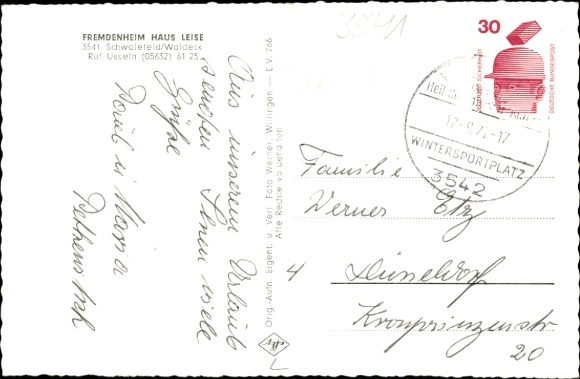 FREMDENHEIM HAUS LEISE
3541 Schwalefeld/Waldeck
Ruf Usseln (05632) 61 25
Aus unserem Urlaub
senden Ihnen viele
Grüße
Maria
Orig.-Aufn. Eigent. u. Verl. Foto Werner, Willingen — E.V. 766
Alle Rechte vorbehalten
3541
30
DEUTSCHE BUNDESPOST
Heil
-17
WINTERSPORTPLATZ
3542
Familie
Werner
4 Düsseldorf
Kronprinzenstr
20